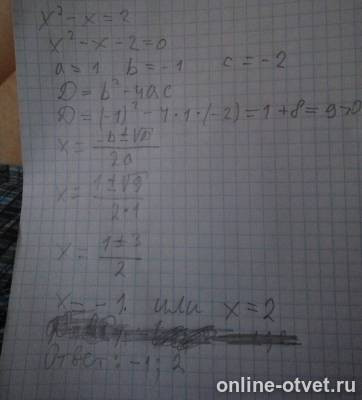 x² - x = 2
x² - x - 2 = 0
a = 1 b = -1 c = -2
D = b² - 4ac
D = (-1)² - 4·1·(-2) = 1 + 8 = 9 > 0
x = (-b ± √D) / 2a
x = (1 ± √9) / 2·1
x = (1 ± 3) / 2
x = -1. или x = 2
Ответ: -1; 2
online-otvet.ru